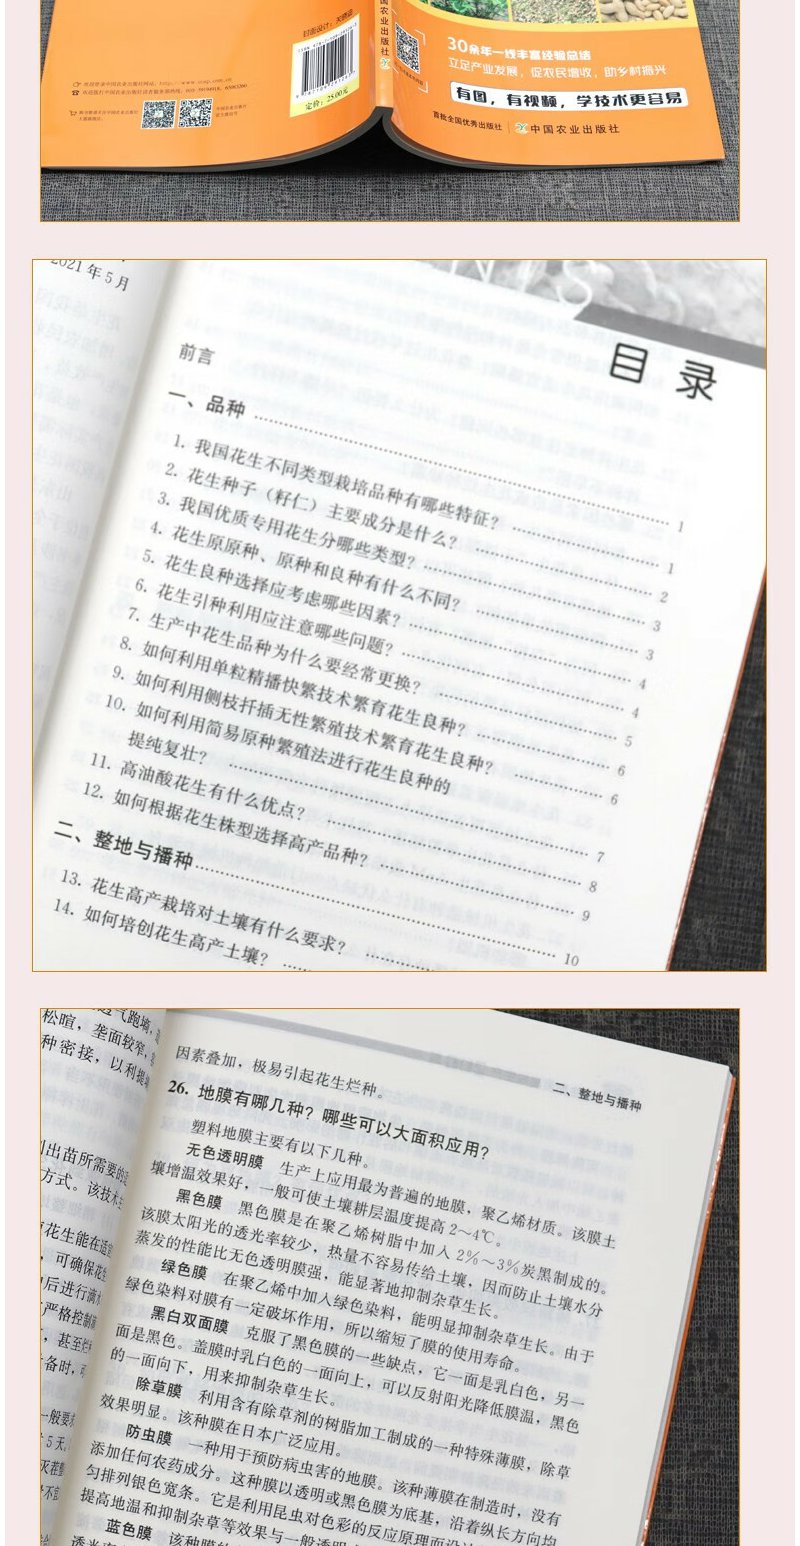 封面设计：关晓迪
定价：25.00元
中国农业出版社
30余年一线丰富经验总结
立足产业发展，促农民增收，助乡村振兴
有图，有视频，学技术更容易
首批全国优秀出版社 中国农业出版社
2021年5月
目录
前言
一、品种 1
1. 我国花生不同类型栽培品种有哪些特征？ 1
2. 花生种子（籽仁）主要成分是什么？ 2
3. 我国优质专用花生分哪些类型？ 3
4. 花生原原种、原种和良种有什么不同？ 3
5. 花生良种选择应考虑哪些因素？ 4
6. 花生引种利用应注意哪些问题？ 4
7. 生产中花生品种为什么要经常更换？ 5
8. 如何利用单粒精播快繁技术繁育花生良种？ 6
9. 如何利用侧枝扦插无性繁殖技术繁育花生良种？ 6
10. 如何利用简易原种繁殖法进行花生良种的
提纯复壮？ 7
11. 高油酸花生有什么优点？ 8
12. 如何根据花生株型选择高产品种？ 9
二、整地与播种 10
13. 花生高产栽培对土壤有什么要求？
14. 如何培创花生高产土壤？
气跑墒
松暄，垄面较窄，
种密接，以利提
出苗所需要的
方式。该技术
花生能在适
，可确保花
后进行滴
严格控制
，甚至烂
备时，可
一般要
5天
二、整地与播种
因素叠加，极易引起花生烂种。
26. 地膜有哪几种？哪些可以大面积应用？
塑料地膜主要有以下几种。
无色透明膜 生产上应用最为普遍的地膜，聚乙烯材质。该膜土
壤增温效果好，一般可使土壤耕层温度提高2～4℃。
黑色膜 黑色膜是在聚乙烯树脂中加入2%～3%炭黑制成的。
该膜太阳光的透光率较少，热量不容易传给土壤，因而防止土壤水分
蒸发的性能比无色透明膜强，能显著地抑制杂草生长。
绿色膜 在聚乙烯中加入绿色染料，能明显抑制杂草生长。由于
绿色染料对膜有一定破坏作用，所以缩短了膜的使用寿命。
黑白双面膜 克服了黑色膜的一些缺点，它一面是乳白色，另一
面是黑色。盖膜时乳白色的一面向上，可以反射阳光降低膜温，黑色
的一面向下，用来抑制杂草生长。
除草膜 利用含有除草剂的树脂加工制成的一种特殊薄膜，除草
效果明显。该种膜在日本广泛应用。
防虫膜 一种用于预防病虫害的地膜。该种薄膜在制造时，没有
添加任何农药成分。这种膜以透明或黑色膜为底基，沿着纵长方向均
匀排列银色宽条。它是利用昆虫对色彩的反应原理而设
提高地温和抑制杂草等效果与一般透明
蓝色膜 该种膜的